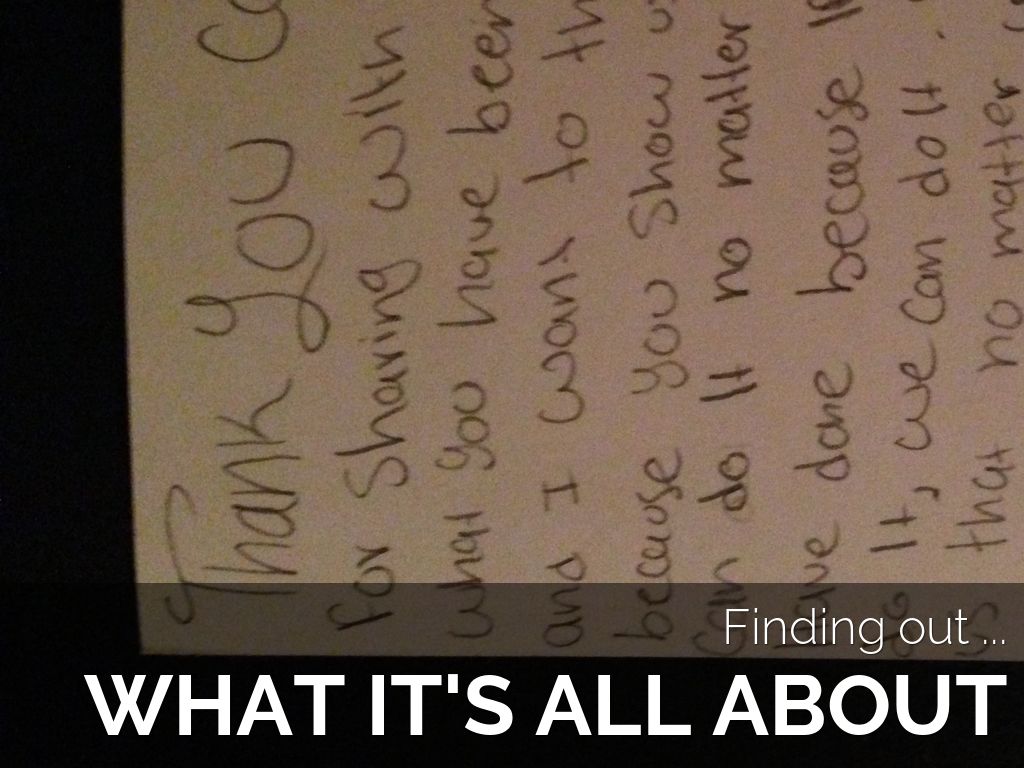 Thank You
for sharing with
what you have been
and I want to
because you show
can do it no matter
have done because
it, we can do it.
that no matter
Finding out ...
WHAT IT'S ALL ABOUT